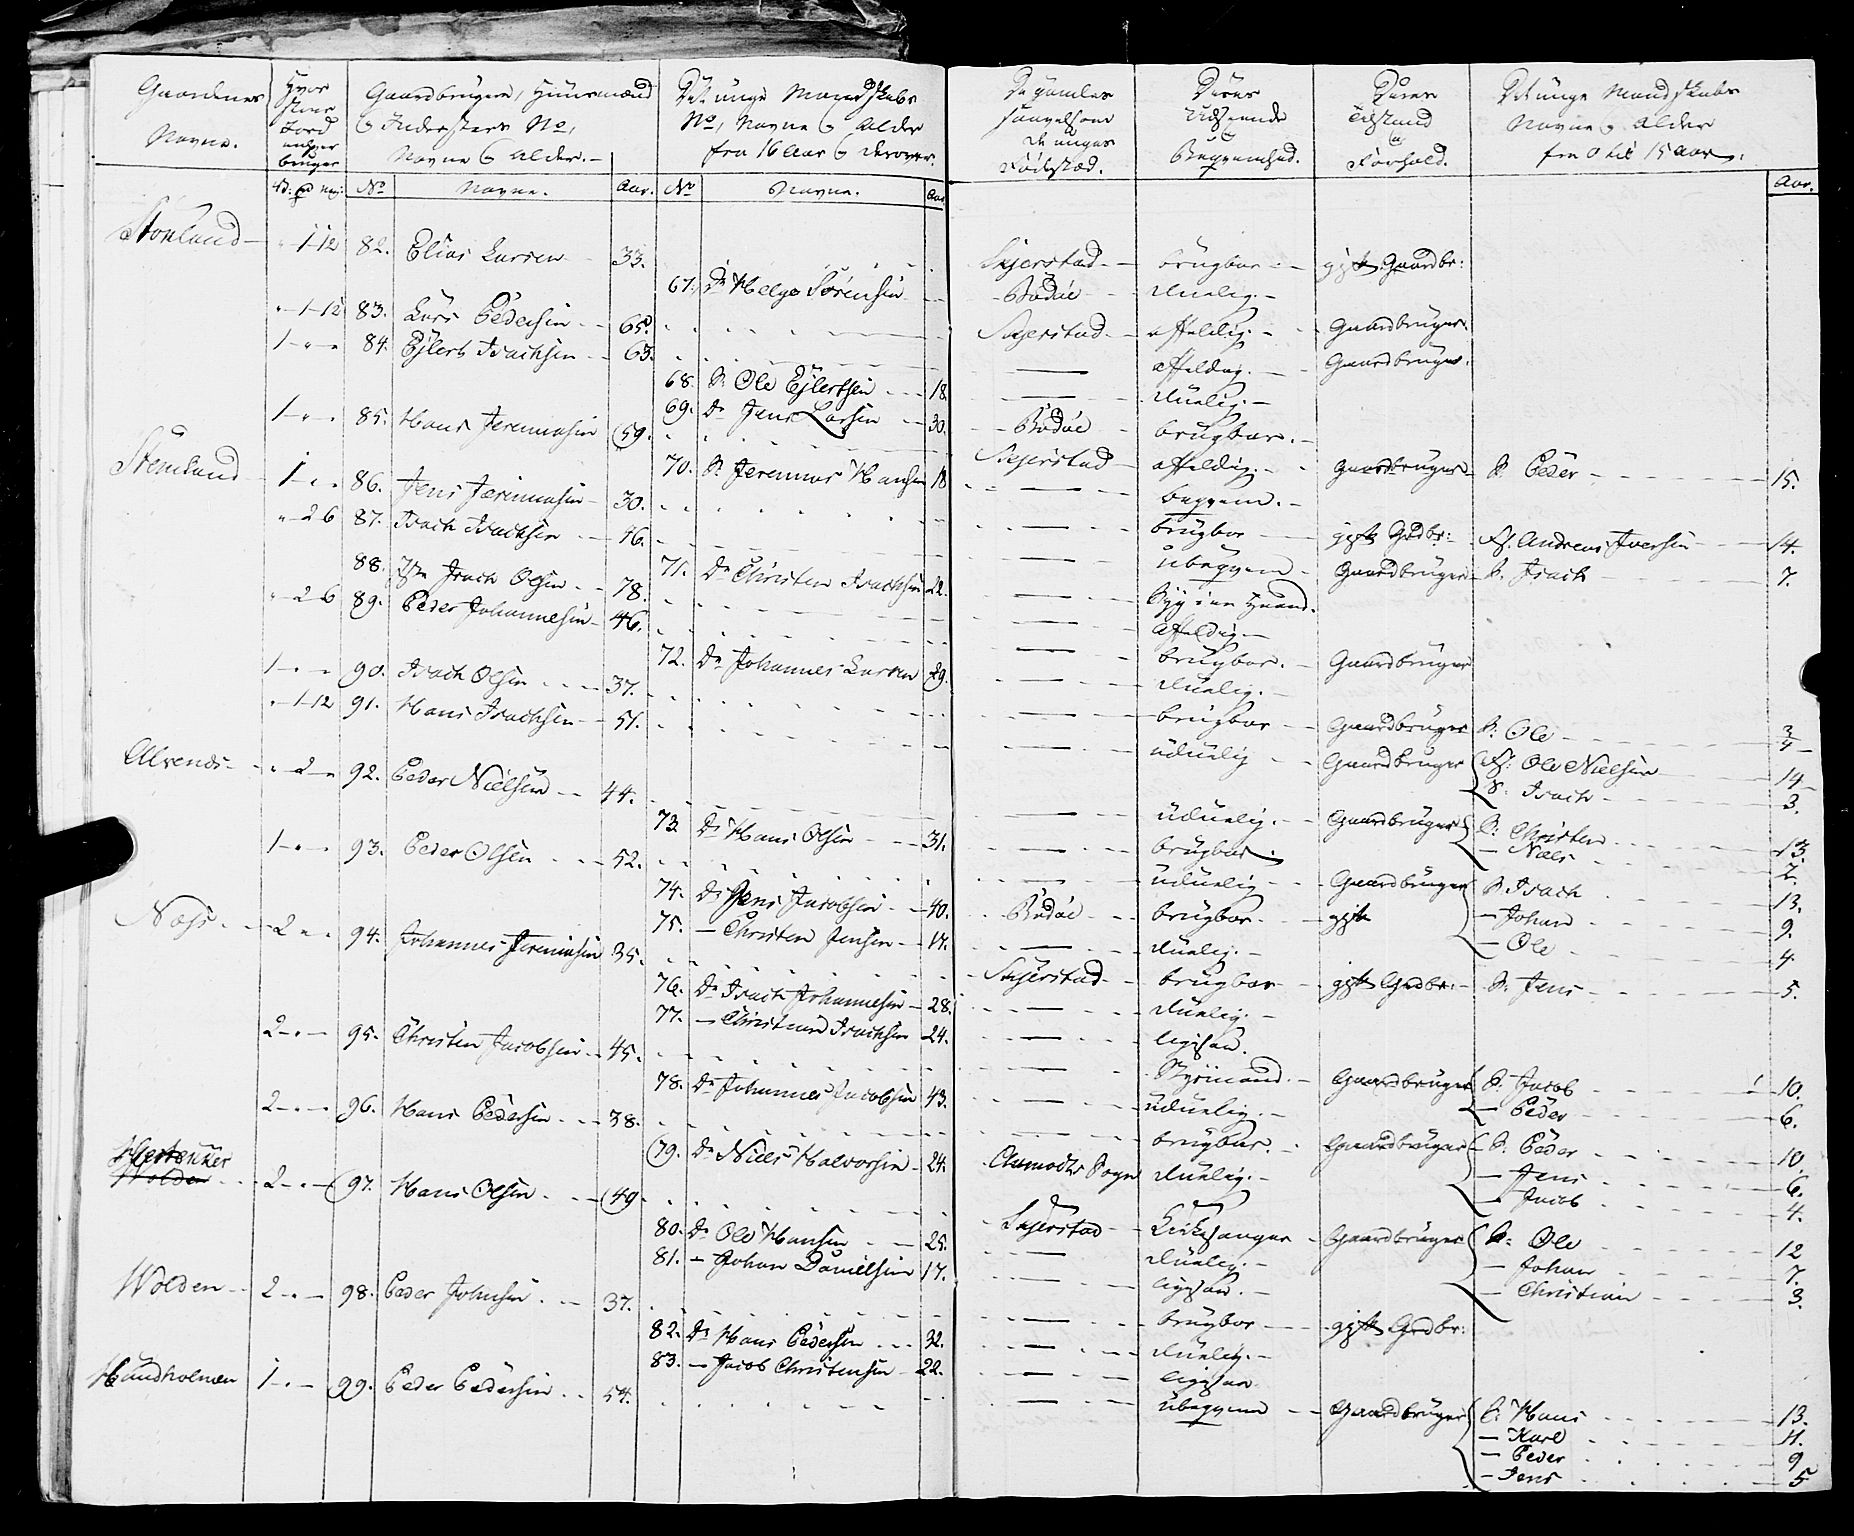 Gaardenes Navne. | Hvor stor Jord enhver bruger | Gaardbrugere, Huusmænd & Inderster No, Navne & Alder. | Det unge Mandskabs No, Navne & Alder fra 16 Aar & derover. | De gamles saavelsom de unges Fødested. | Deres Udseende & Beqvemhed. | Deres Tilstand & Forhold. | Det unge Mandskabs Navne & Alder fra 0 til 15 Aar.
No | Navne. | Aar. | No | Navne. | Aar. | Aar.
1-12 | 82. | Elias Larsen | 33. | Skjerstad | brugbar | gift Gaardbr:
67. | Dr Helge Sørensen | Bodøe | duelig.
1-12 | 83. | Lars Pedersen | 65. | Skjerstad | affeldig. | Gaardbruger.
1 | 84. | Ejlert Isachsen | 63. | affeldig. | Gaardbruger.
68. | S. Ole Ejlertsen | 18 | duelig.
69. | Dr Jens Larsen | 30. | Bodøe | brugbar.
1 | 85. | Hans Jeremiasen | 59. | Skjerstad | affeldig. | Gaardbruger | S. Peder | 15.
70. | S. Jeremias Hansen | 18 | beqvem.
1 | 86. | Jens Jerimiasen | 30. | brugbar | gift Grdbr: | Andreas Iversen | 14.
2-6 | 87. | Isach Isachsen | 46. | ubeqvem | Gaardbruger | S. Isach | 7.
71. | Dr Christen Isachsen | 22.
88. | Isach Olsen | 78. | affeldig.
2-6 | 89. | Peder Johannesen | 46. | brugbar. | Gaardbruger
72. | Dr Johannes Larsen | 29. | duelig.
1 | 90. | Isach Olsen | 37. | brugbar | Gaardbruger | S: Ole | 3/4
1-12 | 91. | Hans Isachsen | 51. | uduelig | Gaardbruger | Ole Nielsen | 14
S. Isach | 3.
2 | 92. | Peder Nielsen | 44. | uduelig. | Gaardbruger | S: Christen | 13.
Niels
73. | Dr Hans Olsen | 31. | brugbar.
1 | 93. | Peder Olsen | 52. | uduelig | Gaardbruger | S. Isach | 13.
Johan | 9.
Ole | 4.
74. | Dr Jens Jacobsen | 40. | Bodøe | brugbar | gift
75. | Christen Jensen | 17. | duelig.
Næss | 2 | 94. | Johannes Jeremiasen | 35. | Skjerstad | brugbar | gift Grdbr: | S. Jens | 5.
76. | Dr Isach Johannesen | 28. | duelig.
77. | Christian Isachsen | 24. | ligesaa.
2 | 95. | Christen Jacobsen | 45. | Styrmand. | Gaardbruger | S. Jacob | 10.
Peder | 6.
78. | Dr Johannes Jacobsen | 43. | uduelig.
2 | 96. | Hans Pedersen | 38. | brugbar. | Gaardbruger | S. Peder | 10.
Jens | 6.
Jacob | 4.
79. | Dr Niels Halvorsen | 24. | Sogn | duelig.
Wolden | 2 | 97. | Hans Olsen | 49 | Skjerstad | Kirkesanger | Gaardbruger | S: Ole | 12
Johan | 7.
Christian | 3.
80. | Dr Ole Hansen | 25. | duelig.
81. | Johan Danielsen | 17. | ligesaa.
Wolden | 2 | 98. | Peder Johnsen | 37. | brugbar | gift Grdbr:
82. | Dr Hans Pedersen | 32. | duelig.
83. | Jacob Christensen | 22. | ligesaa
Hundholmen | 1 | 99. | Peder Pedersen | 54. | ubeqvem | Gaardbruger | S: Hans | 13.
Karl | 11.
Peder | 9
Jens | 5